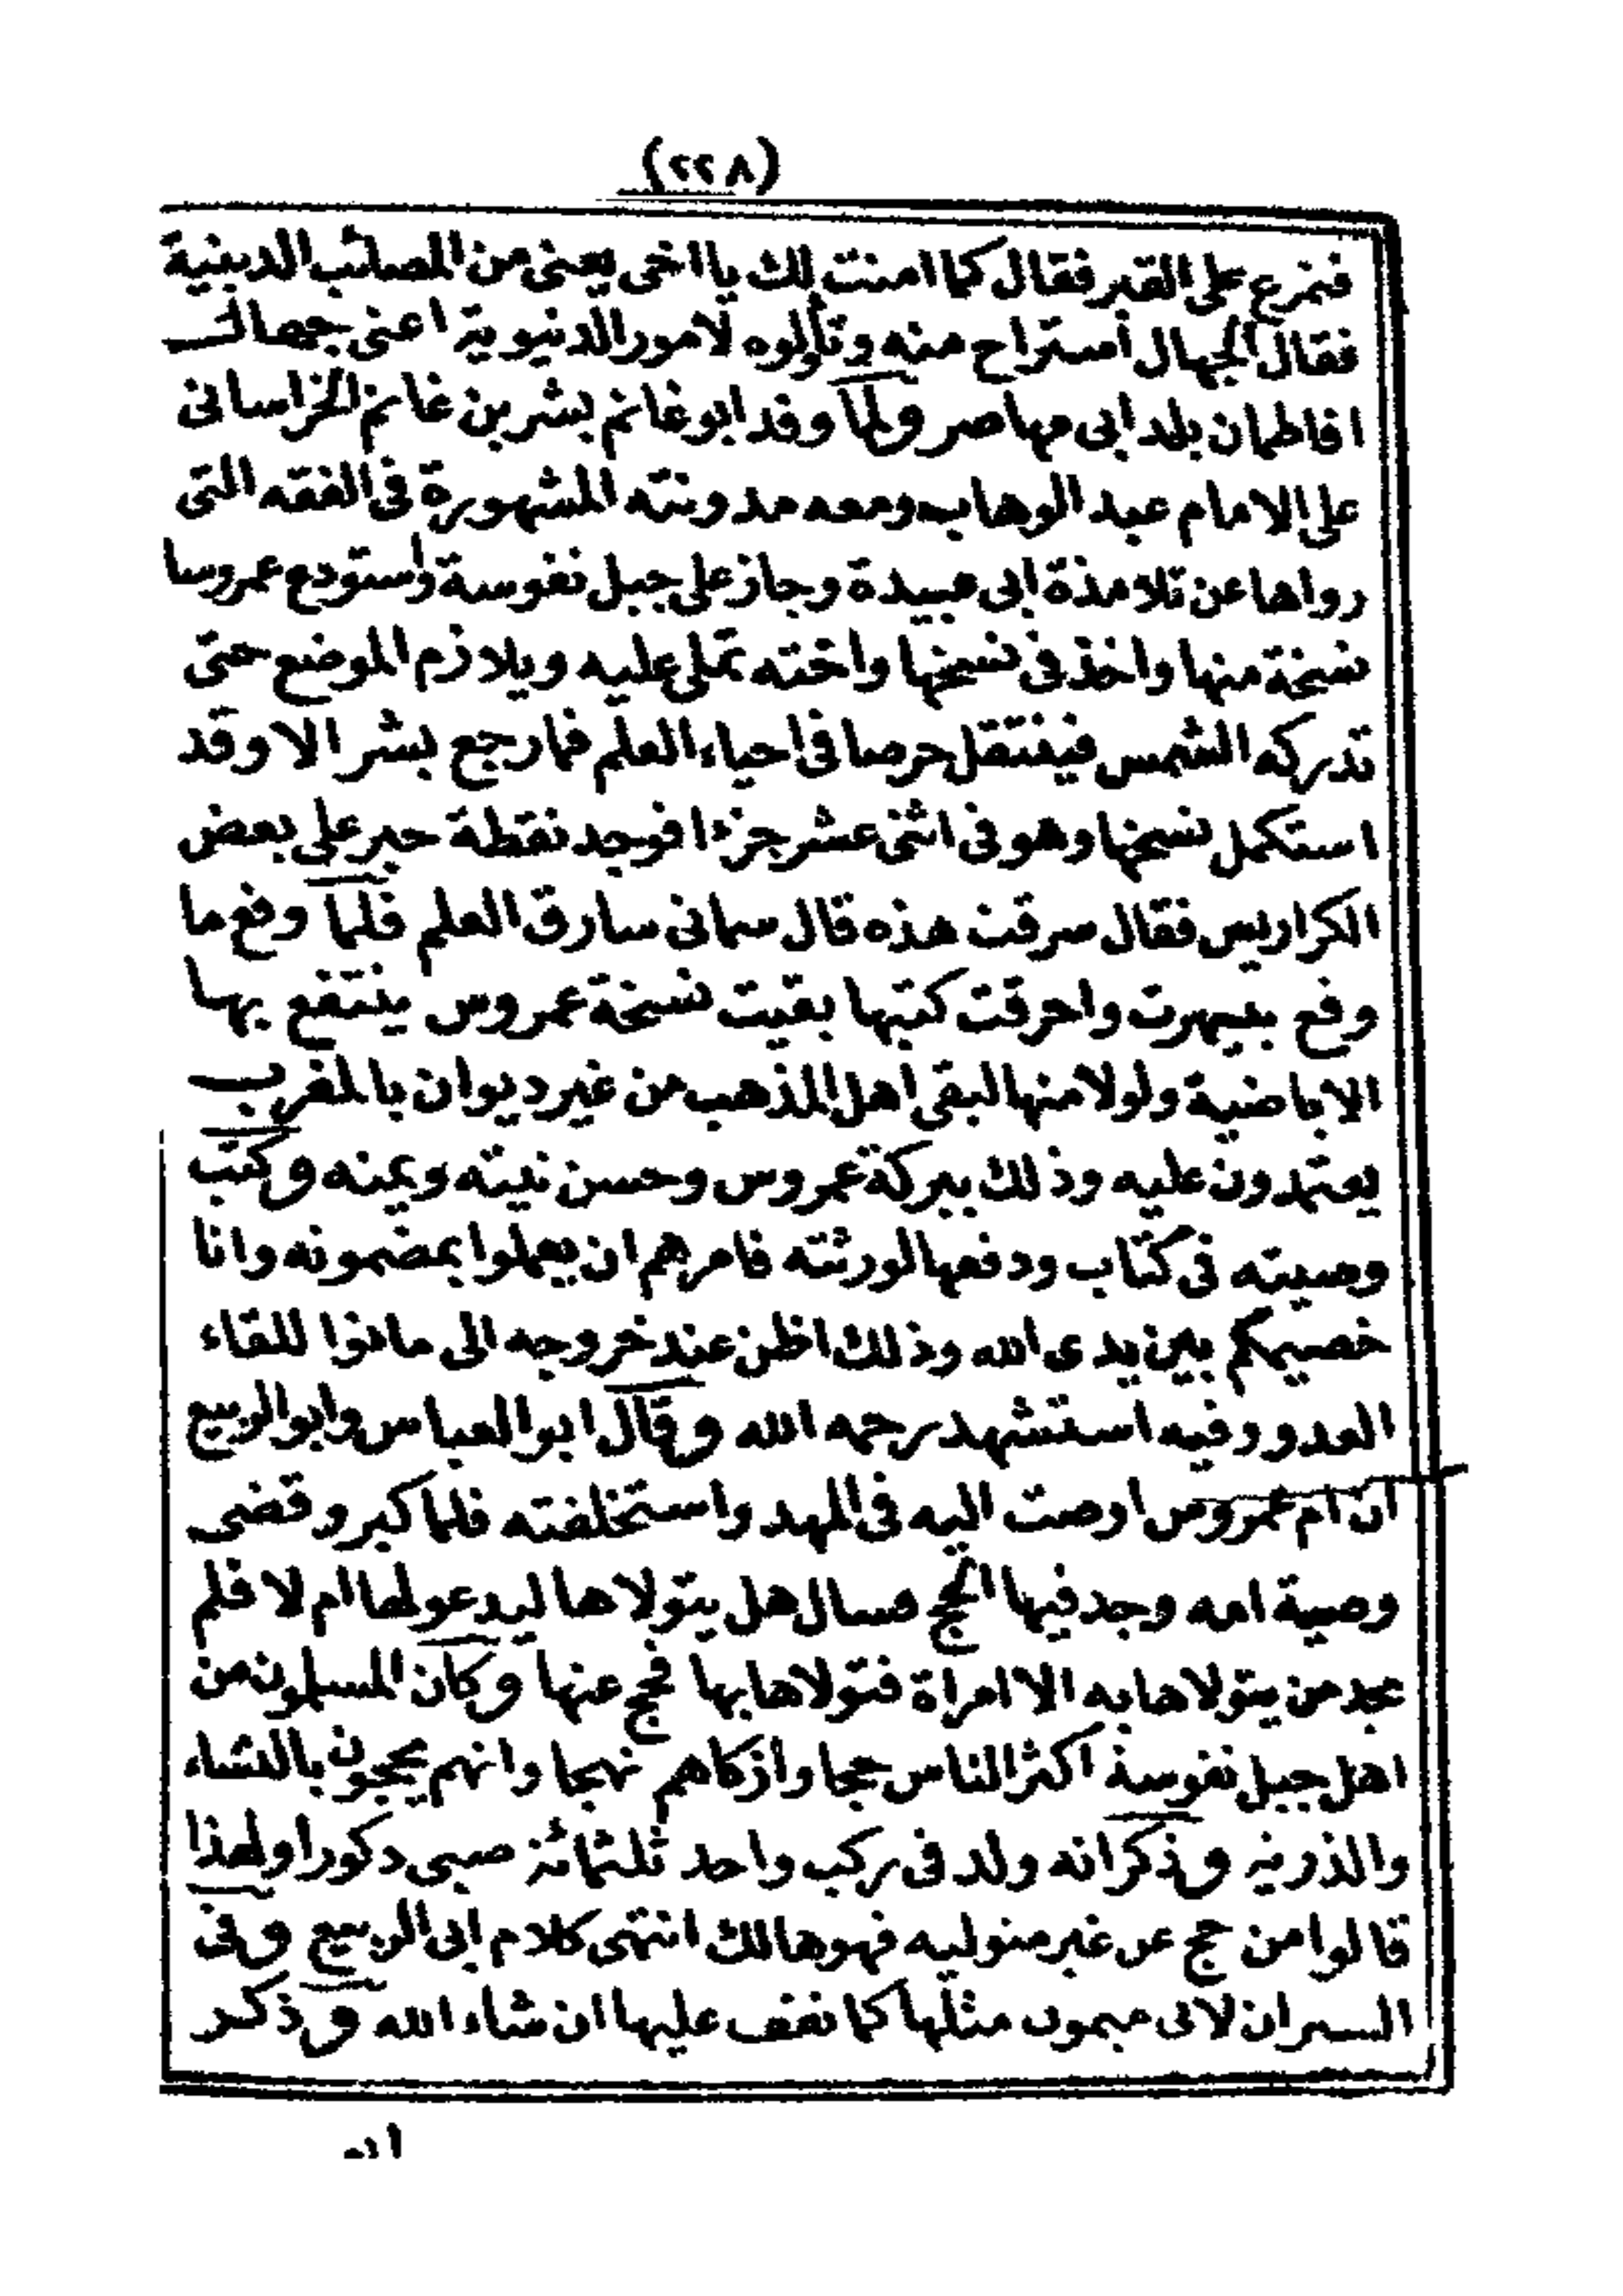 (٢٢٨)
فتمرغ على القبر فقال كما امنت لك يا اخى يعنى من المصائب الدينية
فقال الجهال أستراح منه وتأولوه لامور الدنيوية اعنى جهال
افاطمان بلد ابى مهاصر ولما وفد ابو غانم بشر بن غانم الخراسانى
على الامام عبد الوهاب ومعه مدونته المشهورة فى الفقه التى
رواها عن تلامذة ابى عبيدة وجاز على جبل نفوسة وأستودع عمروسا
نسخة منها واخذ فى نسخها واخته تملى عليه ويلازم الموضع حتى
تدركه الشمس فينتقل حرصا فى احياء العلم فما رجع بشر الا وقد
استكمل نسخها وهو فى اثنى عشر جزءا فوجد نقطة حبر على بعض
الكراريس فقال سرقت هذه قال سمانى سارق العلم فلما وقع ما
وقع بتيهرت واحرقت كتبها بقيت نسخة عمروس ينتفع بها
الاباضية ولولا منها لبقى اهل المذهب من غير ديوان بالمغرب
يعتمدون عليه وذلك ببركة عمروس وحسن نيته ويمنه وكتب
وصيته فى كتاب ودفعها لورثته فامرهم ان يعملوا بمضمونه وانا
خصيمكم بين يدى الله وذلك اظن عند خروجه الى مانوا للقاء
العدو وفيه استشهد رحمه الله وقال ابو العباس وابو الربيع
ان ام عمروس اوصت اليه فى المهد واستخلفته فلما كبر وقضى
وصية امه وجد فيها الحج فسال هل يتولاها ليدعو لها ام لا فلم
يجد من يتولاها به الا امراة فتولاها بها فحج عنها وكان المسلمون من
اهل جبل نفوسة اكثر الناس حجا وازكاهم نهجا وانهم يحجون بالنساء
والذرية وذكر انه ولد فى ركب واحد ثلثمائة صبى ذكورا ولهذا
قالوا من حج عن غير متوليه فهو هالك انتهى كلام ابى الربيع وفى
السير ان لابى ميمون مثلها كما نقف عليها ان شاء الله وذكر